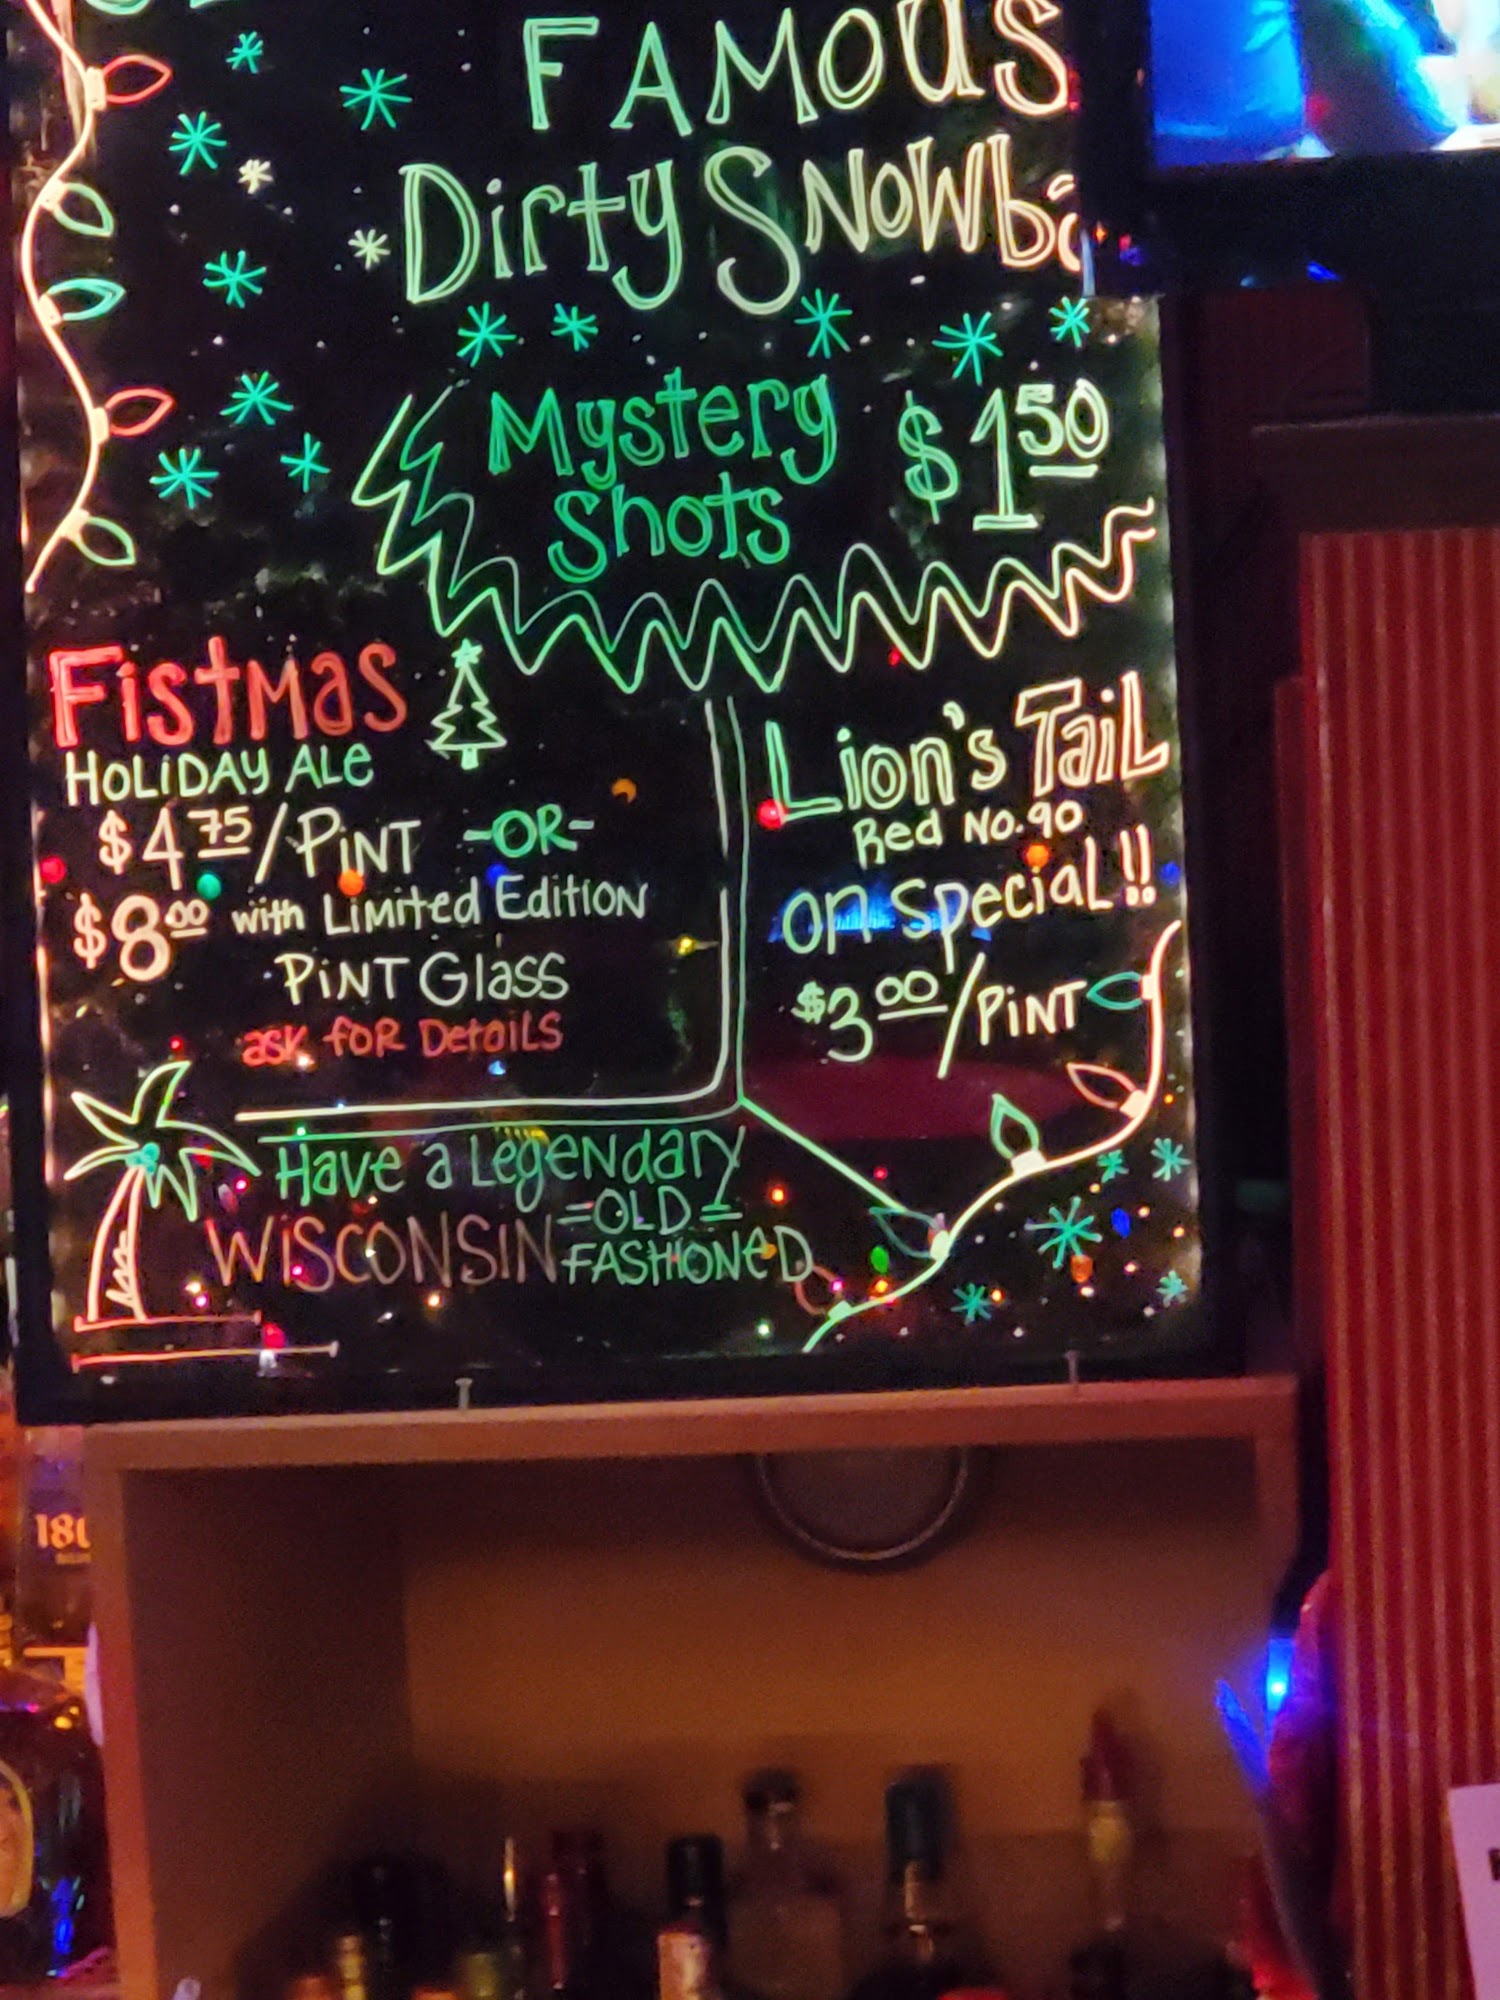 FAMOUS
Dirty SNOWba
Mystery
Shots
$1.50
FistMas
HOLiDAY ALE
$4.75/PiNT -OR-
$8.00 with Limited Edition
PiNT Glass
ask FOR Details
Lion's TaiL
Red No. 90
on special!!
$3.00/PiNT
Have a LegeNdary
WiSCONSIN =OLD=
FASHIONeD
180